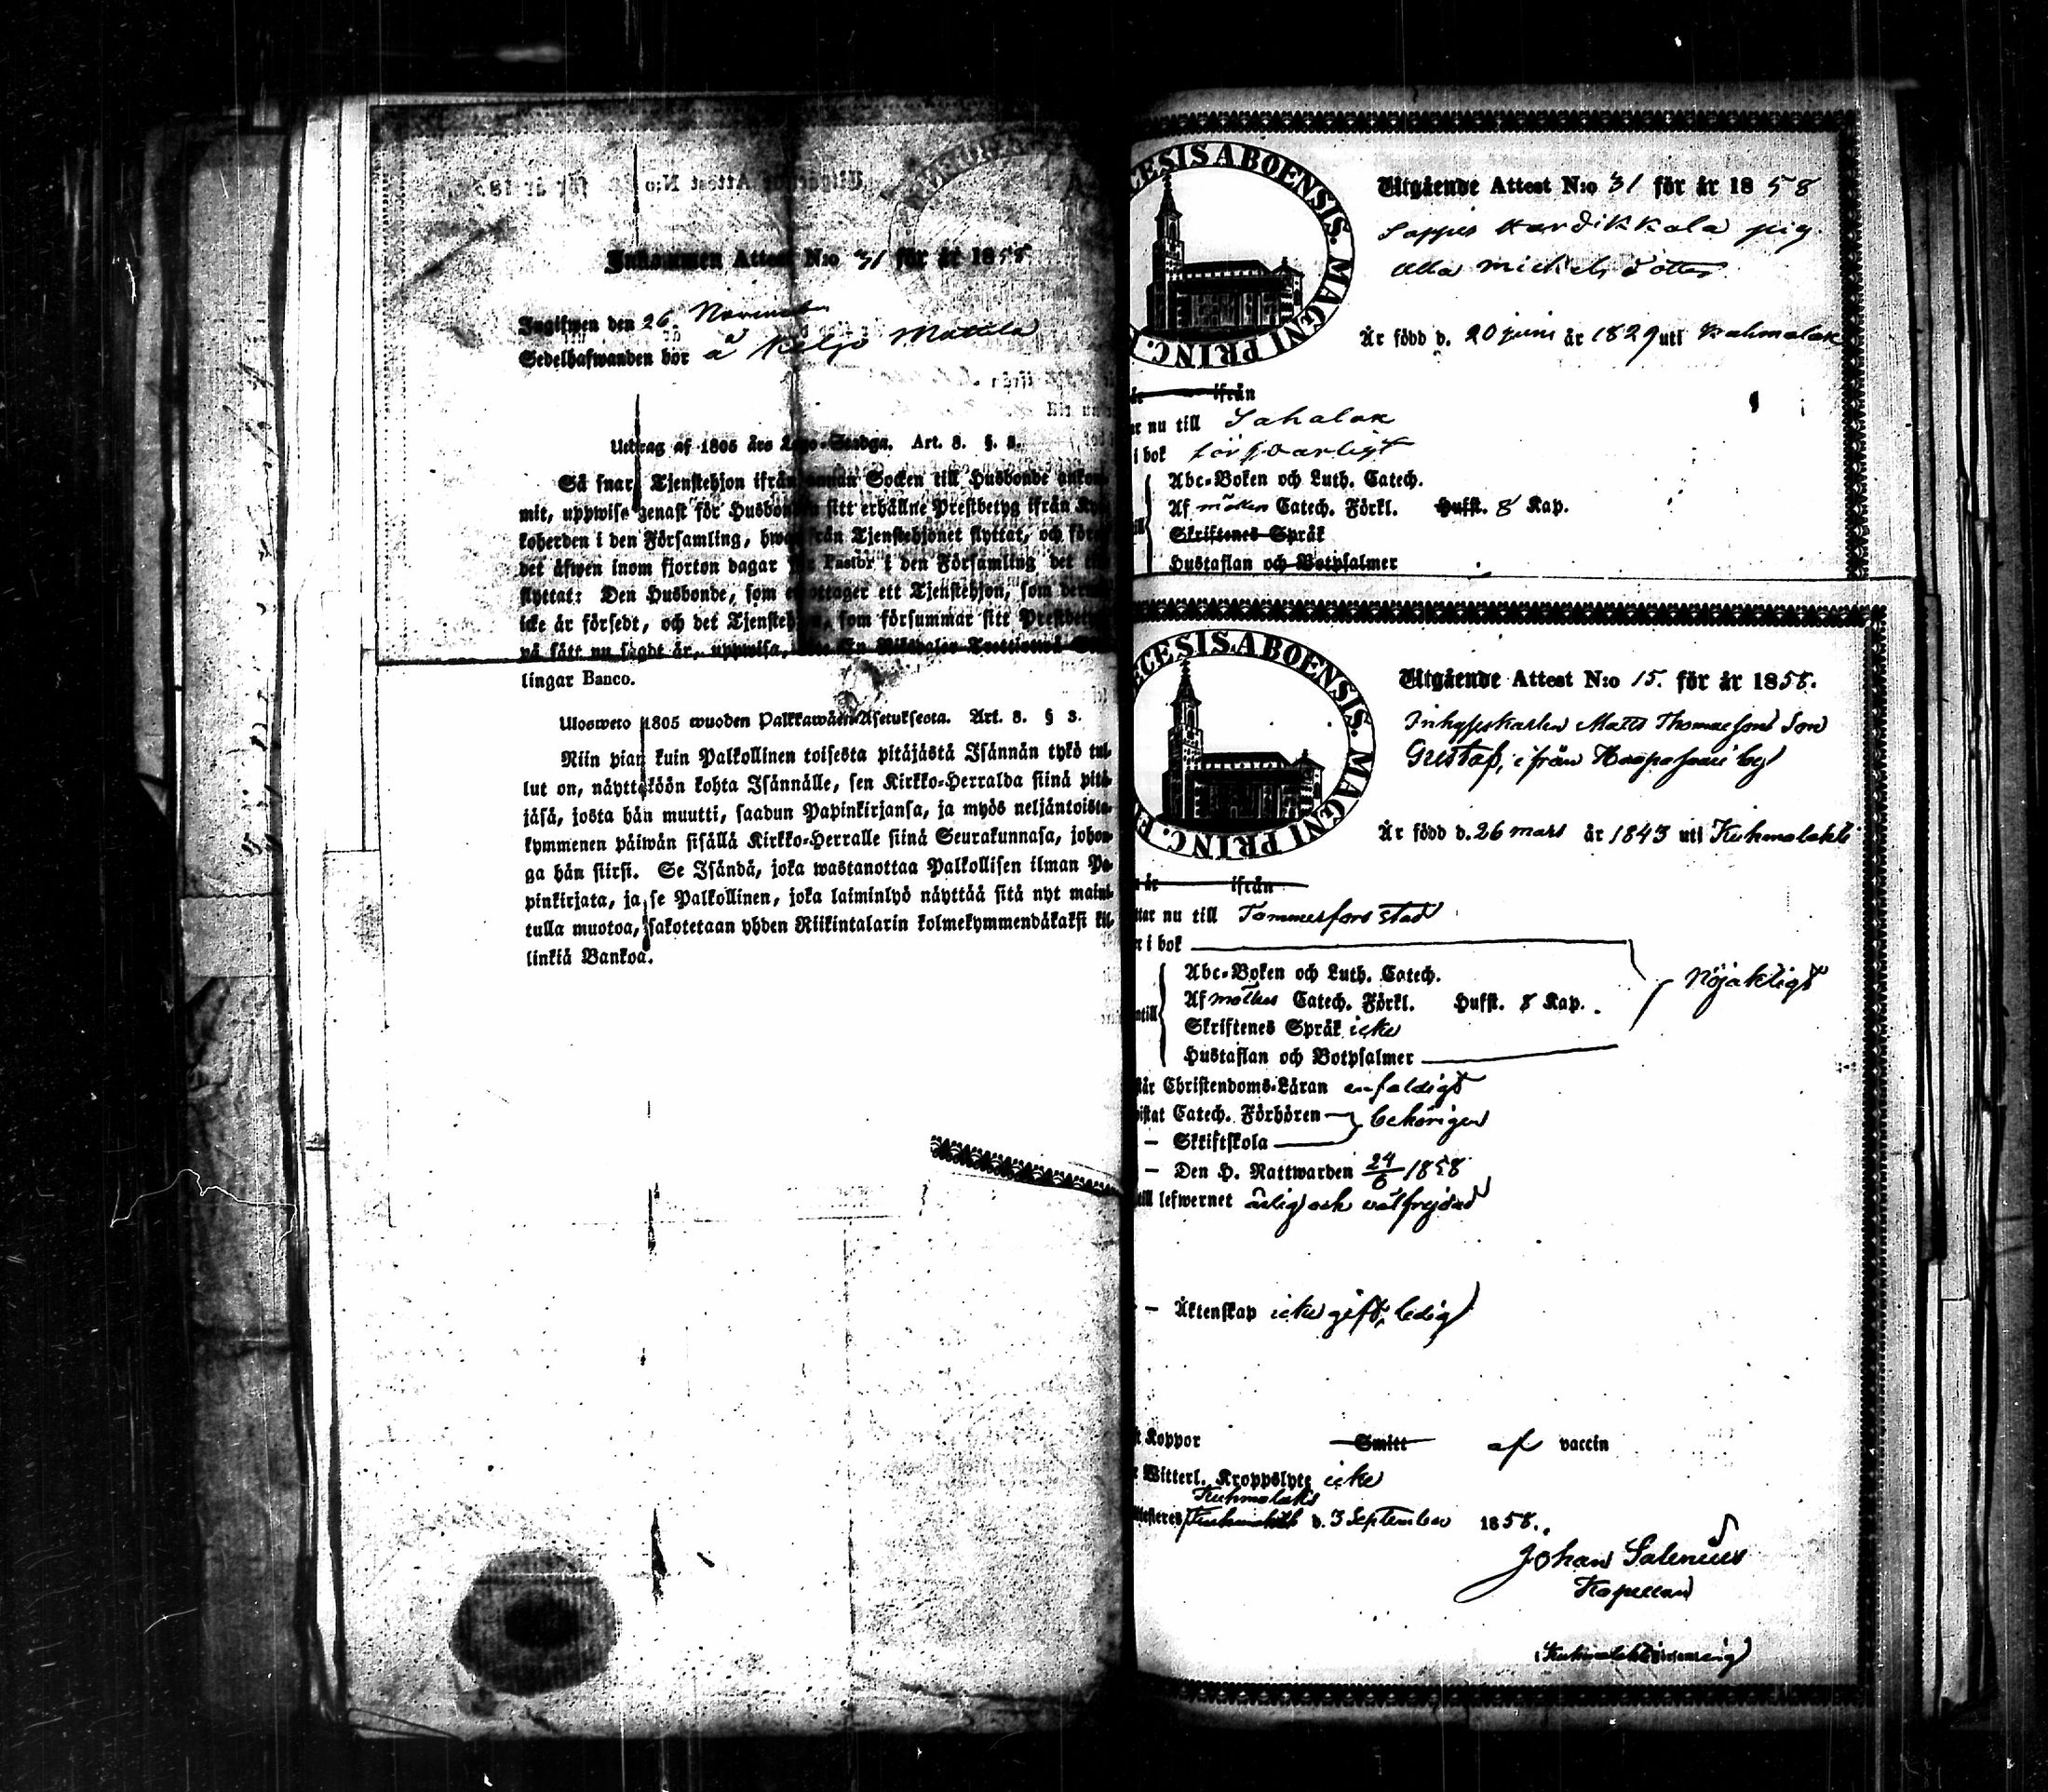 Inkommen Attest N:o 31 för år 1858
Ingifwen den 26 November
Sedelhafwanden bor å Keljo Mattila
Utdrag af 1805 års Lego-Stadga. Art. 8. §. 3.
Så snart Tjenstehjon ifrån annan Socken till Husbonde ankom-
mit, uppwise genast för Husbonden sitt erhållne Prestbetyg ifrån Kyr-
koherden i den Församling, hwarifrån Tjenstehjonet flyttat, och före
det äfwen inom fjorton dagar för Pastor i den Församling det
flyttat: Den Husbonde, som emottager ett Tjenstehjon, som dermed
icke är försedt, och det Tjenstehjon, som försummar sitt Prestbetyg
på sätt nu sagdt är, uppwisa,
lingar Banco.
Ulosweto 1805 wuoden Palkkawäen-Asetuksesta. Art. 8. § 3.
Niin pian kuin Palkollinen toisesta pitäjästä Isännän tykö tul-
lut on, näyttäköön kohta Isännälle, sen Kirkko-Herralda siinä pitä-
jäsä, josta hän muutti, saadun Papinkirjansa, ja myös neljäntoista-
kymmenen päiwän sisällä Kirkko-Herralle siinä Seurakunnasa, johon-
ga hän siirsi. Se Isändä, joka wastanottaa Palkollisen ilman Pa-
pinkirjata, ja se Palkollinen, joka laiminlyö näyttää sitä nyt maini-
tulla muotoa, sakotetaan yhden Riikintalarin kolmekymmendäkaksi kil-
linkiä Bankoa.
CESIS ABOENSIS. MAGNI PRINC.
Utgående Attest N:o 31 för år 1858
pig
Ulla Michelsdotter
Är född d. 20 juni år 1829 uti Kuhmalax
år ifrån
nu till Sahalax
i bok försvarligt
Abc-Boken och Luth. Catech.
Af möllers Catech. Förkl. Husst. 8 Kap.
Skriftenes Språk
Hustaflan och Botpsalmer
CESIS ABOENSIS. MAGNI PRINC.
Utgående Attest N:o 15. för år 1858.
Inhyseskarlen Matts Thomasons Son
Gustaf, ifrån Haapasaari by
Är född d. 26 mars år 1843 uti Kuhmalaks
år ifrån
nu till Tammerfors stad
i bok
Abc-Boken och Luth. Catech.
Af möllers Catech. Förkl. Husst. 8 Kap. nöjaktigt
Skriftenes Språk icke
Hustaflan och Botpsalmer
Christendoms-Läran enfaldigt
Catech. Förhören behörigen
— Skriftskola
— Den H. Nattwarden 24/6 1858
till lefwernet ärlig och välfrejdad
— Äktenskap icke gift, ledig
Koppor Smitt af vaccin
Witterl. Kroppslyte icke
Kuhmalaks
d. 3 September 1858.
Johan Salenius
Kapellan